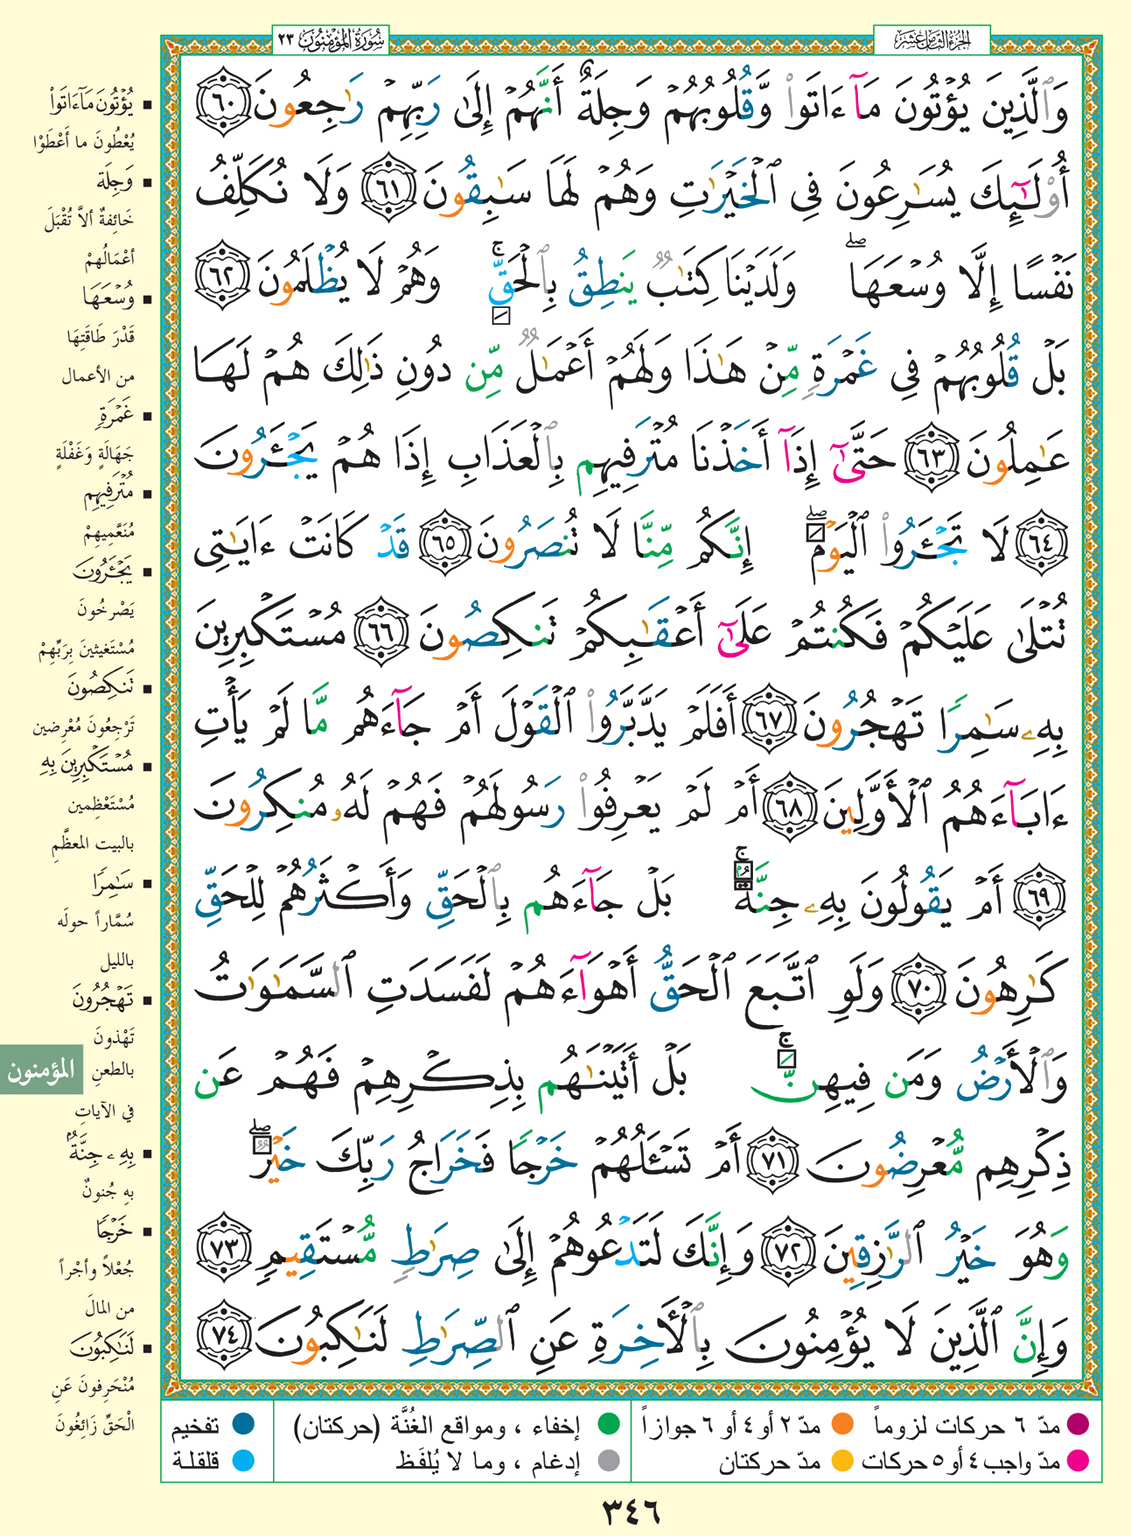 الجزء الثامن عشر
سورة المؤمنون ٢٣
وَٱلَّذِينَ يُؤْتُونَ مَآ ءَاتَوا۟ وَّقُلُوبُهُمْ وَجِلَةٌ أَنَّهُمْ إِلَىٰ رَبِّهِمْ رَٰجِعُونَ ٦٠
أُو۟لَـٰٓئِكَ يُسَـٰرِعُونَ فِى ٱلْخَيْرَٰتِ وَهُمْ لَهَا سَـٰبِقُونَ ٦١ وَلَا نُكَلِّفُ
نَفْسًا إِلَّا وُسْعَهَا ۖ وَلَدَيْنَا كِتَـٰبٌ يَنطِقُ بِٱلْحَقِّ ۚ وَهُمْ لَا يُظْلَمُونَ ٦٢
بَلْ قُلُوبُهُمْ فِى غَمْرَةٍ مِّنْ هَـٰذَا وَلَهُمْ أَعْمَـٰلٌ مِّن دُونِ ذَٰلِكَ هُمْ لَهَا
عَـٰمِلُونَ ٦٣ حَتَّىٰٓ إِذَآ أَخَذْنَا مُتْرَفِيهِم بِٱلْعَذَابِ إِذَا هُمْ يَجْـَٔرُونَ
٦٤ لَا تَجْـَٔرُوا۟ ٱلْيَوْمَ ۖ إِنَّكُم مِّنَّا لَا تُنصَرُونَ ٦٥ قَدْ كَانَتْ ءَايَـٰتِى
تُتْلَىٰ عَلَيْكُمْ فَكُنتُمْ عَلَىٰٓ أَعْقَـٰبِكُمْ تَنكِصُونَ ٦٦ مُسْتَكْبِرِينَ
بِهِۦ سَـٰمِرًا تَهْجُرُونَ ٦٧ أَفَلَمْ يَدَّبَّرُوا۟ ٱلْقَوْلَ أَمْ جَآءَهُم مَّا لَمْ يَأْتِ
ءَابَآءَهُمُ ٱلْأَوَّلِينَ ٦٨ أَمْ لَمْ يَعْرِفُوا۟ رَسُولَهُمْ فَهُمْ لَهُۥ مُنكِرُونَ
٦٩ أَمْ يَقُولُونَ بِهِۦ جِنَّةٌۢ ۚ بَلْ جَآءَهُم بِٱلْحَقِّ وَأَكْثَرُهُمْ لِلْحَقِّ
كَـٰرِهُونَ ٧٠ وَلَوِ ٱتَّبَعَ ٱلْحَقُّ أَهْوَآءَهُمْ لَفَسَدَتِ ٱلسَّمَـٰوَٰتُ
وَٱلْأَرْضُ وَمَن فِيهِنَّ ۚ بَلْ أَتَيْنَـٰهُم بِذِكْرِهِمْ فَهُمْ عَن
ذِكْرِهِم مُّعْرِضُونَ ٧١ أَمْ تَسْـَٔلُهُمْ خَرْجًا فَخَرَاجُ رَبِّكَ خَيْرٌ ۖ
وَهُوَ خَيْرُ ٱلرَّٰزِقِينَ ٧٢ وَإِنَّكَ لَتَدْعُوهُمْ إِلَىٰ صِرَٰطٍ مُّسْتَقِيمٍ ٧٣
وَإِنَّ ٱلَّذِينَ لَا يُؤْمِنُونَ بِٱلْـَٔاخِرَةِ عَنِ ٱلصِّرَٰطِ لَنَـٰكِبُونَ ٧٤
■ يُؤْتُونَ مَآ ءَاتَوا۟
يُعْطُونَ ما أَعْطَوْا
■ وَجِلَة
خَائِفةٌ ألاَّ تُقْبَلَ
أعْمَالُهمْ
■ وُسْعَهَا
قَدْرَ طَاقَتِهَا
من الأعمال
■ غَمْرَةٍ
جَهَالَةٍ وَغَفْلَةٍ
■ مُتْرَفِيهِم
مُنَعَّمِيهِمْ
■ يَجْـَٔرُونَ
يَصْرخُونَ
مُسْتَغيثينَ بِرَبِّهِمْ
■ تَنكِصُونَ
تَرْجِعُونَ مُعْرِضين
■ مُسْتَكْبِرِينَ بِهِ
مُسْتَعْظِمين
بالبيت المعظَّمِ
■ سَـٰمِرًا
سُمَّاراً حولَه
بالليل
■ تَهْجُرُونَ
تَهْذونَ
بالطعنِ
في الآياتِ
■ بِهِۦ جِنَّةٌۢ
بهِ جُنونٌ
■ خَرْجًا
جُعْلاً وأجْراً
من المالَ
■ لَنَـٰكِبُونَ
مُنْحَرِفونَ عَنِ
الْحَقِّ زَائِغُونَ
المؤمنون
مدّ ٦ حركات لزوماً
مدّ ٢ أو ٤ أو ٦ جوازاً
إخفاء ، ومواقع الغُنَّة (حركتان)
تفخيم
مدّ واجب ٤ أو ٥ حركات
مدّ حركتان
إدغام ، وما لا يُلفَظ
قلقلة
٣٤٦